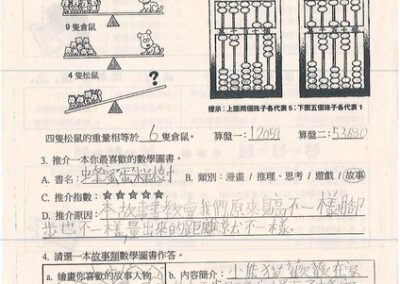 9 隻倉鼠
4 隻松鼠
?
提示:上面兩個珠子各代表 5;下面五個珠子各代表 1
四隻松鼠的重量相等於 6 隻倉鼠。 算盤一:12054 算盤二:53680
3. 推介一本你最喜歡的數學圖書。
A. 書名: 蜂蜜蛋糕樹 B. 類別:漫畫 / 推理、思考 / 遊戲 / 故事
C. 推介指數:☆☆☆☆☆
D. 推介原因: 本故事教會我們原來高不一樣腳
步也不一樣,量出來的距離就不一樣。
4. 請選一本故事類數學圖書作答。
a. 繪畫你喜歡的故事人物 b. 內容簡介: 小熊猫歡歡在家